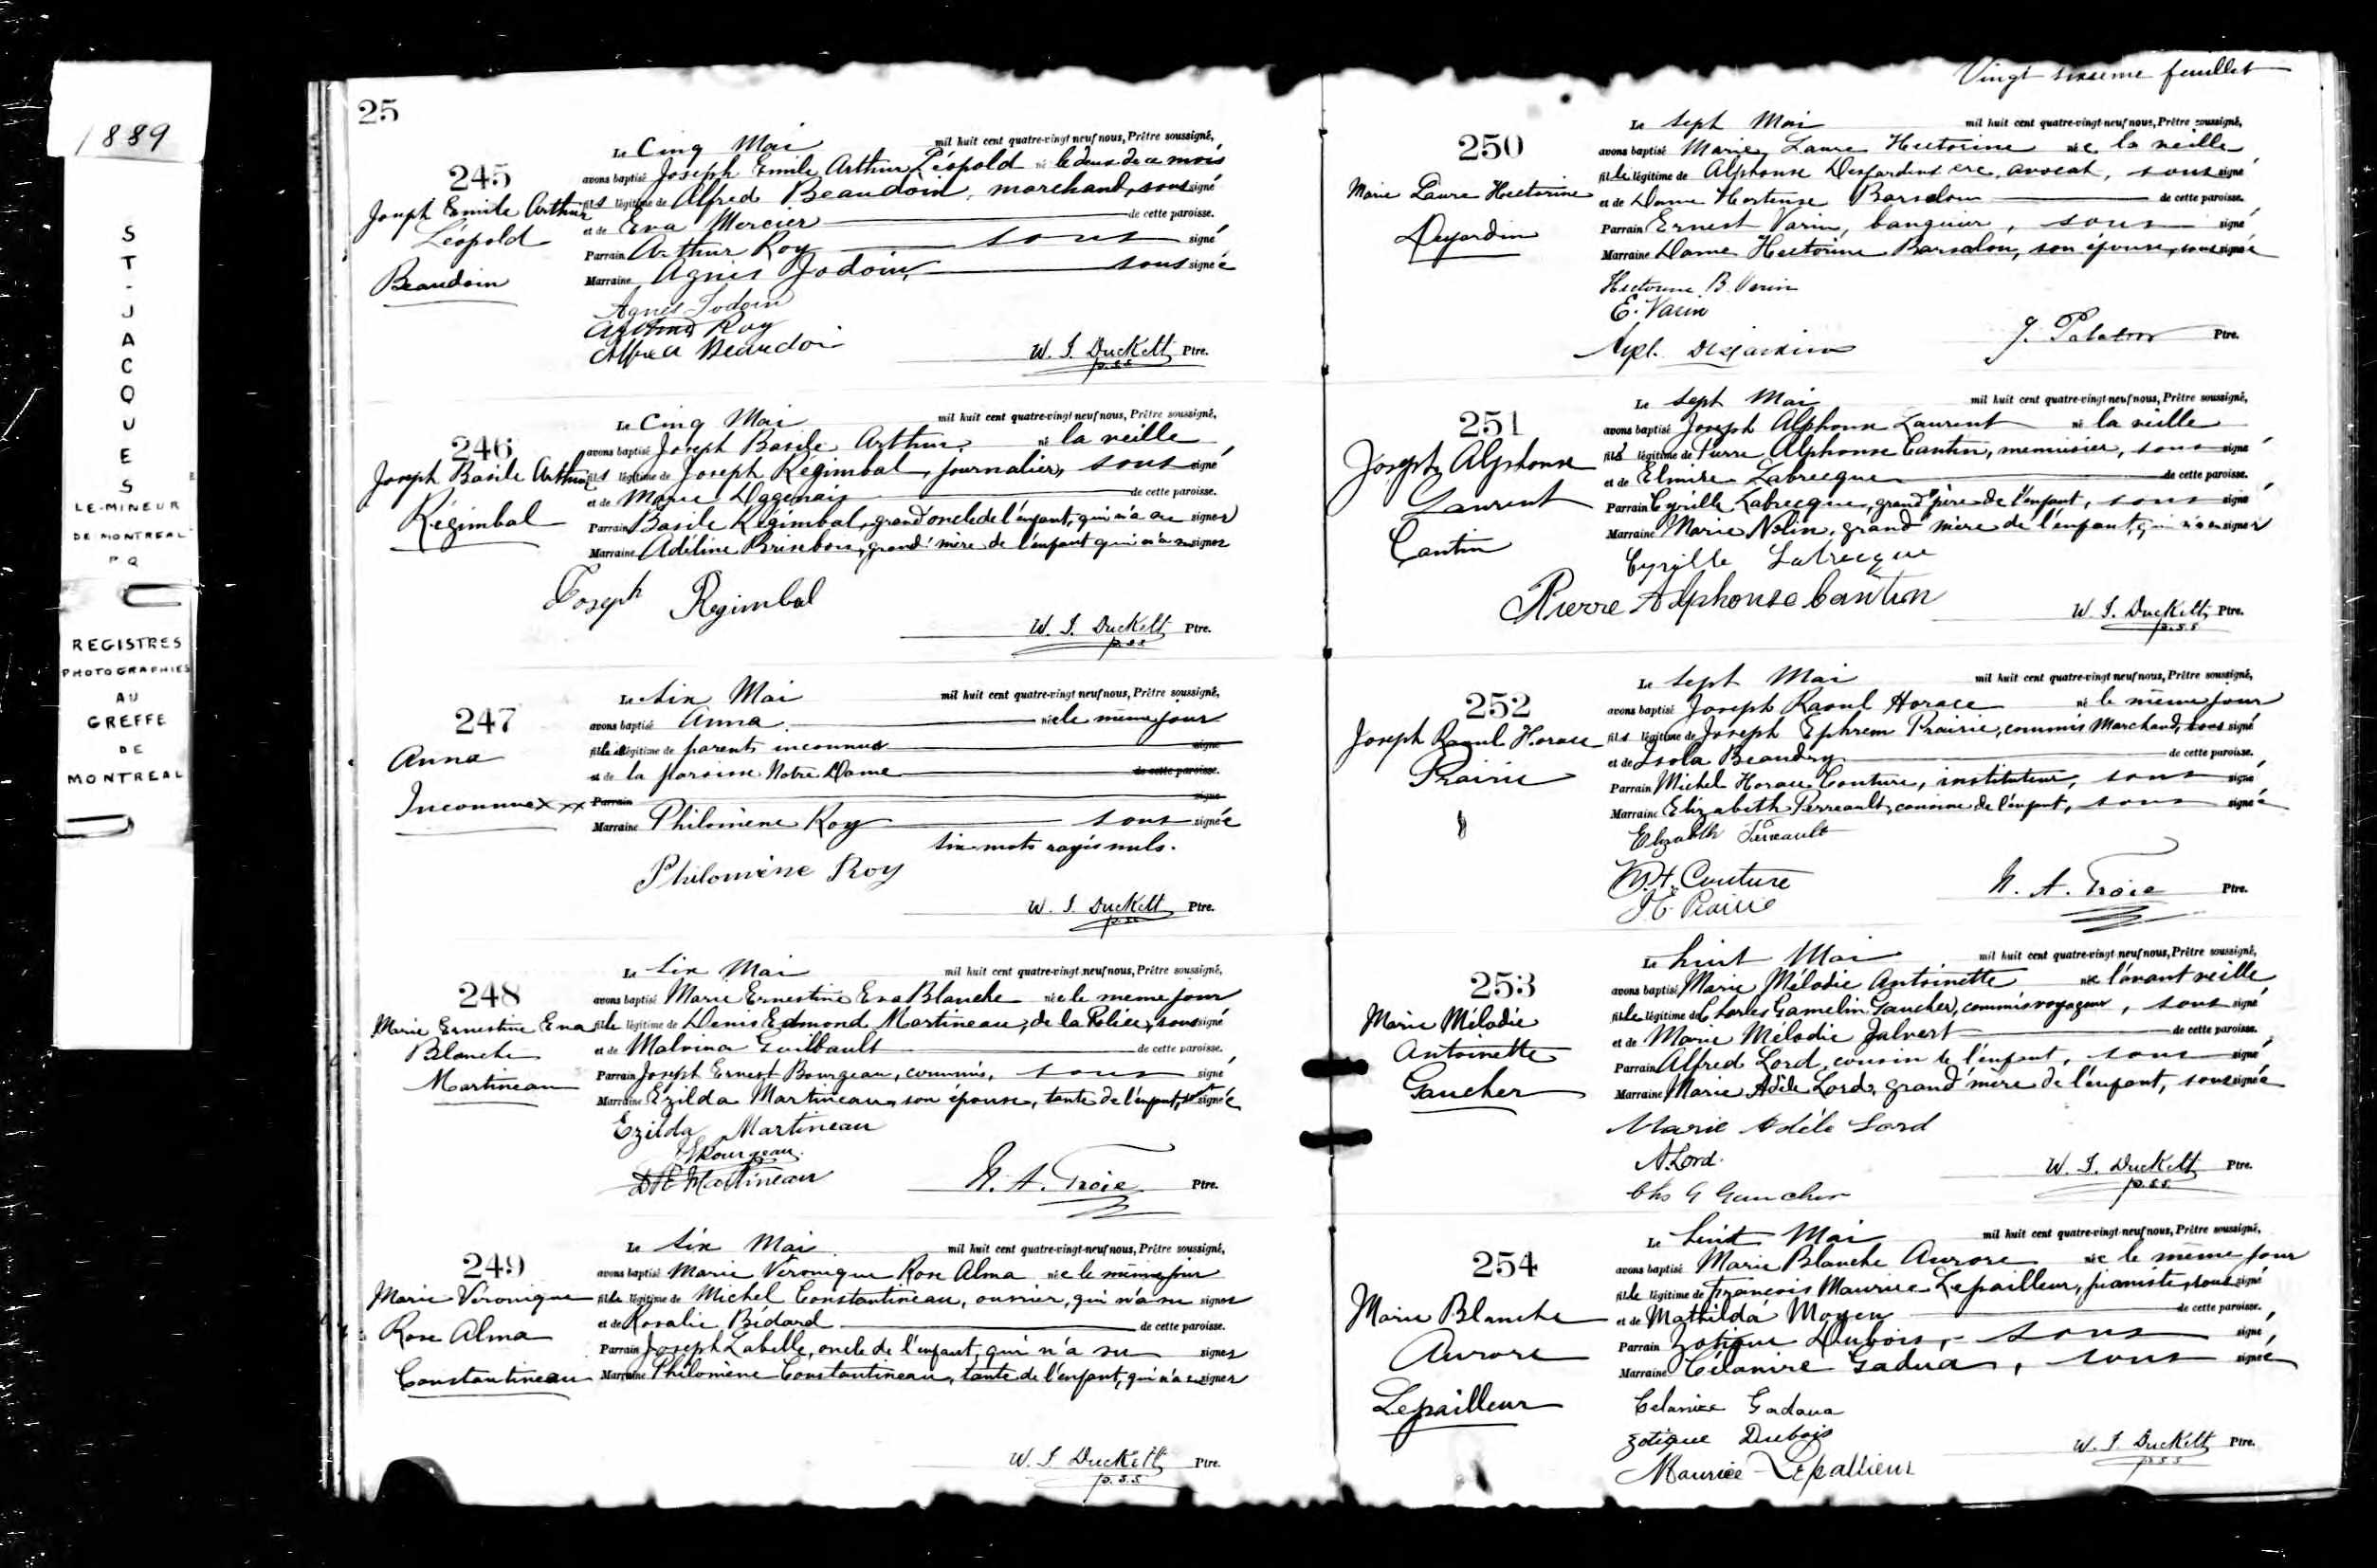 1889
ST-JACQUES
LE-MINEUR
DE MONTREAL
P Q
REGISTRES
PHOTOGRAPHIES
AU
GREFFE
DE
MONTREAL
25
245
Joseph Emile Arthur
Léopold
Beaudoin
Le Cinq Mai mil huit cent quatre-vingt neuf nous, Prêtre soussigné,
avons baptisé Joseph Emile Arthur Léopold né le deux de ce mois
fils légitime de Alfred Beaudoin, marchand, soussigné
et de Eva Mercier de cette paroisse.
Parrain Arthur Roy sous signé
Marraine Agnès Jodoin, sous signée
Agnes Jodoin
Arthur Roy
Alfred Beaudoin
W. J. Duckett Ptre.
p.s.s
246
Joseph Basile Arthur
Régimbal
Le Cinq Mai mil huit cent quatre-vingt neuf nous, Prêtre soussigné,
avons baptisé Joseph Basile Arthur né la veille
fils légitime de Joseph Régimbal, journalier, sous signé
et de Marie Dagenais de cette paroisse.
Parrain Basile Régimbal, grand oncle de l'enfant, qui n'a su signer
Marraine Adéline Brisebois, grand'mère de l'enfant qui n'a su signer
Joseph Regimbal
W. J. Duckett Ptre.
p.s.s
247
Anna
Inconnue xxx
Le Six Mai mil huit cent quatre-vingt neuf nous, Prêtre soussigné,
avons baptisé Anna née le même jour
fille illégitime de parents inconnus signé
et de la paroisse Notre Dame de cette paroisse.
Parrain signé
Marraine Philomène Roy sous signée
Six mots rayés nuls.
Philomène Roy
W. J. Duckett Ptre.
p.s.s
248
Marie Ernestine Eva
Blanche
Martineau
Le Six Mai mil huit cent quatre-vingt neuf nous, Prêtre soussigné,
avons baptisé Marie Ernestine Eva Blanche née le meme jour
fille légitime de Denis Edmond Martineau, de la Police, soussigné
et de Malvina Guilbault de cette paroisse.
Parrain Joseph Ernest Bourgeau, commis, sous signé
Marraine Ezilda Martineau, son épouse, tante de l'enfant, signée
Ezilda Martineau
Bourgeau
D E Martineau
N. A. Troie Ptre.
249
Marie Véronique
Rose Alma
Constantineau
Le Six Mai mil huit cent quatre-vingt-neuf nous, Prêtre soussigné,
avons baptisé Marie Véronique Rose Alma née le même jour
fille légitime de Michel Constantineau, ouvrier, qui n'a su signer
et de Rosalie Bédard de cette paroisse.
Parrain Joseph Labelle, oncle de l'enfant, qui n'a su signer
Marraine Philomène Constantineau, tante de l'enfant, qui n'a su signer
W. J. Duckett Ptre.
p.s.s
Vingt sixième feuillet
250
Marie Laure Hectorine
Desjardin
Le Sept Mai mil huit cent quatre-vingt-neuf nous, Prêtre soussigné,
avons baptisé Marie Laure Hectorine née la veille
fille légitime de Alphonse Desjardins, avocat, sous signé
et de Dame Hortense Barsalou de cette paroisse.
Parrain Ernest Varin, banquier, sous signé
Marraine Dame Hectorine Barsalou, son épouse, sous signée
Hectorine B. Varin
E. Varin
Alph. Desjardins
Ptre.
251
Joseph Alphonse
Laurent
Cantin
Le Sept Mai mil huit cent quatre-vingt neuf nous, Prêtre soussigné,
avons baptisé Joseph Alphonse Laurent né la veille
fils légitime de Pierre Alphonse Cantin, menuisier, sous signé
et de Elmire Labrecque de cette paroisse.
Parrain Cyrille Labrecque, grand'père de l'enfant, sous signé
Marraine Marie Nolin, grand'mère de l'enfant, qui n'a su signer
Cyrille Labrecque
Pierre Alphonse Cantin
W. J. Duckett Ptre.
p.s.s
252
Joseph Raoul Horace
Prairie
Le Sept Mai mil huit cent quatre-vingt neuf nous, Prêtre soussigné,
avons baptisé Joseph Raoul Horace né le même jour
fils légitime de Joseph Ephrem Prairie, commis Marchand, sous signé
et de Isola Beaudry de cette paroisse.
Parrain Michel Horace Couture, instituteur, sous signé
Marraine Elizabeth Perreault, cousine de l'enfant, sous signée
Elizabeth Perreault
M. H. Couture
J E Prairie
N. A. Troie Ptre.
253
Marie Mélodie
Antoinette
Gaucher
Le huit Mai mil huit cent quatre-vingt neuf nous, Prêtre soussigné,
avons baptisé Marie Mélodie Antoinette née l'avant veille
fille légitime de Charles Gamelin Gaucher, commis voyageur, sous signé
et de Marie Mélodie Jalvert de cette paroisse.
Parrain Alfred Lord, cousin de l'enfant, sous signé
Marraine Marie Adèle Lord, grand'mère de l'enfant, soussignée
Marie Adèle Lord
A. Lord.
Chs G Gaucher
W. J. Duckett Ptre.
p.s.s.
254
Marie Blanche
Aurore
Lepailleur
Le huit Mai mil huit cent quatre-vingt neuf nous, Prêtre soussigné,
avons baptisé Marie Blanche Aurore née le même jour
fille légitime de François Maurice Lepailleur, pianiste, sous signé
et de Mathilda Moyen de cette paroisse.
Parrain Zotique Dubois, sous signé,
Marraine Célanire Gadua, sous signée
Celanire Gadoua
Zotique Dubois
Maurice Lepallieur
W. J. Duckett Ptre.
p.s.s